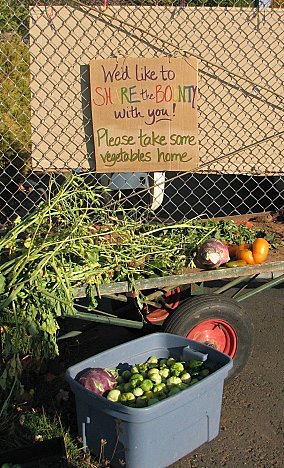 We'd like to
SHARE the BOUNTY
with you!
Please take some
vegetables home